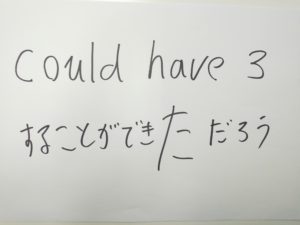 could have 3
することができただろう